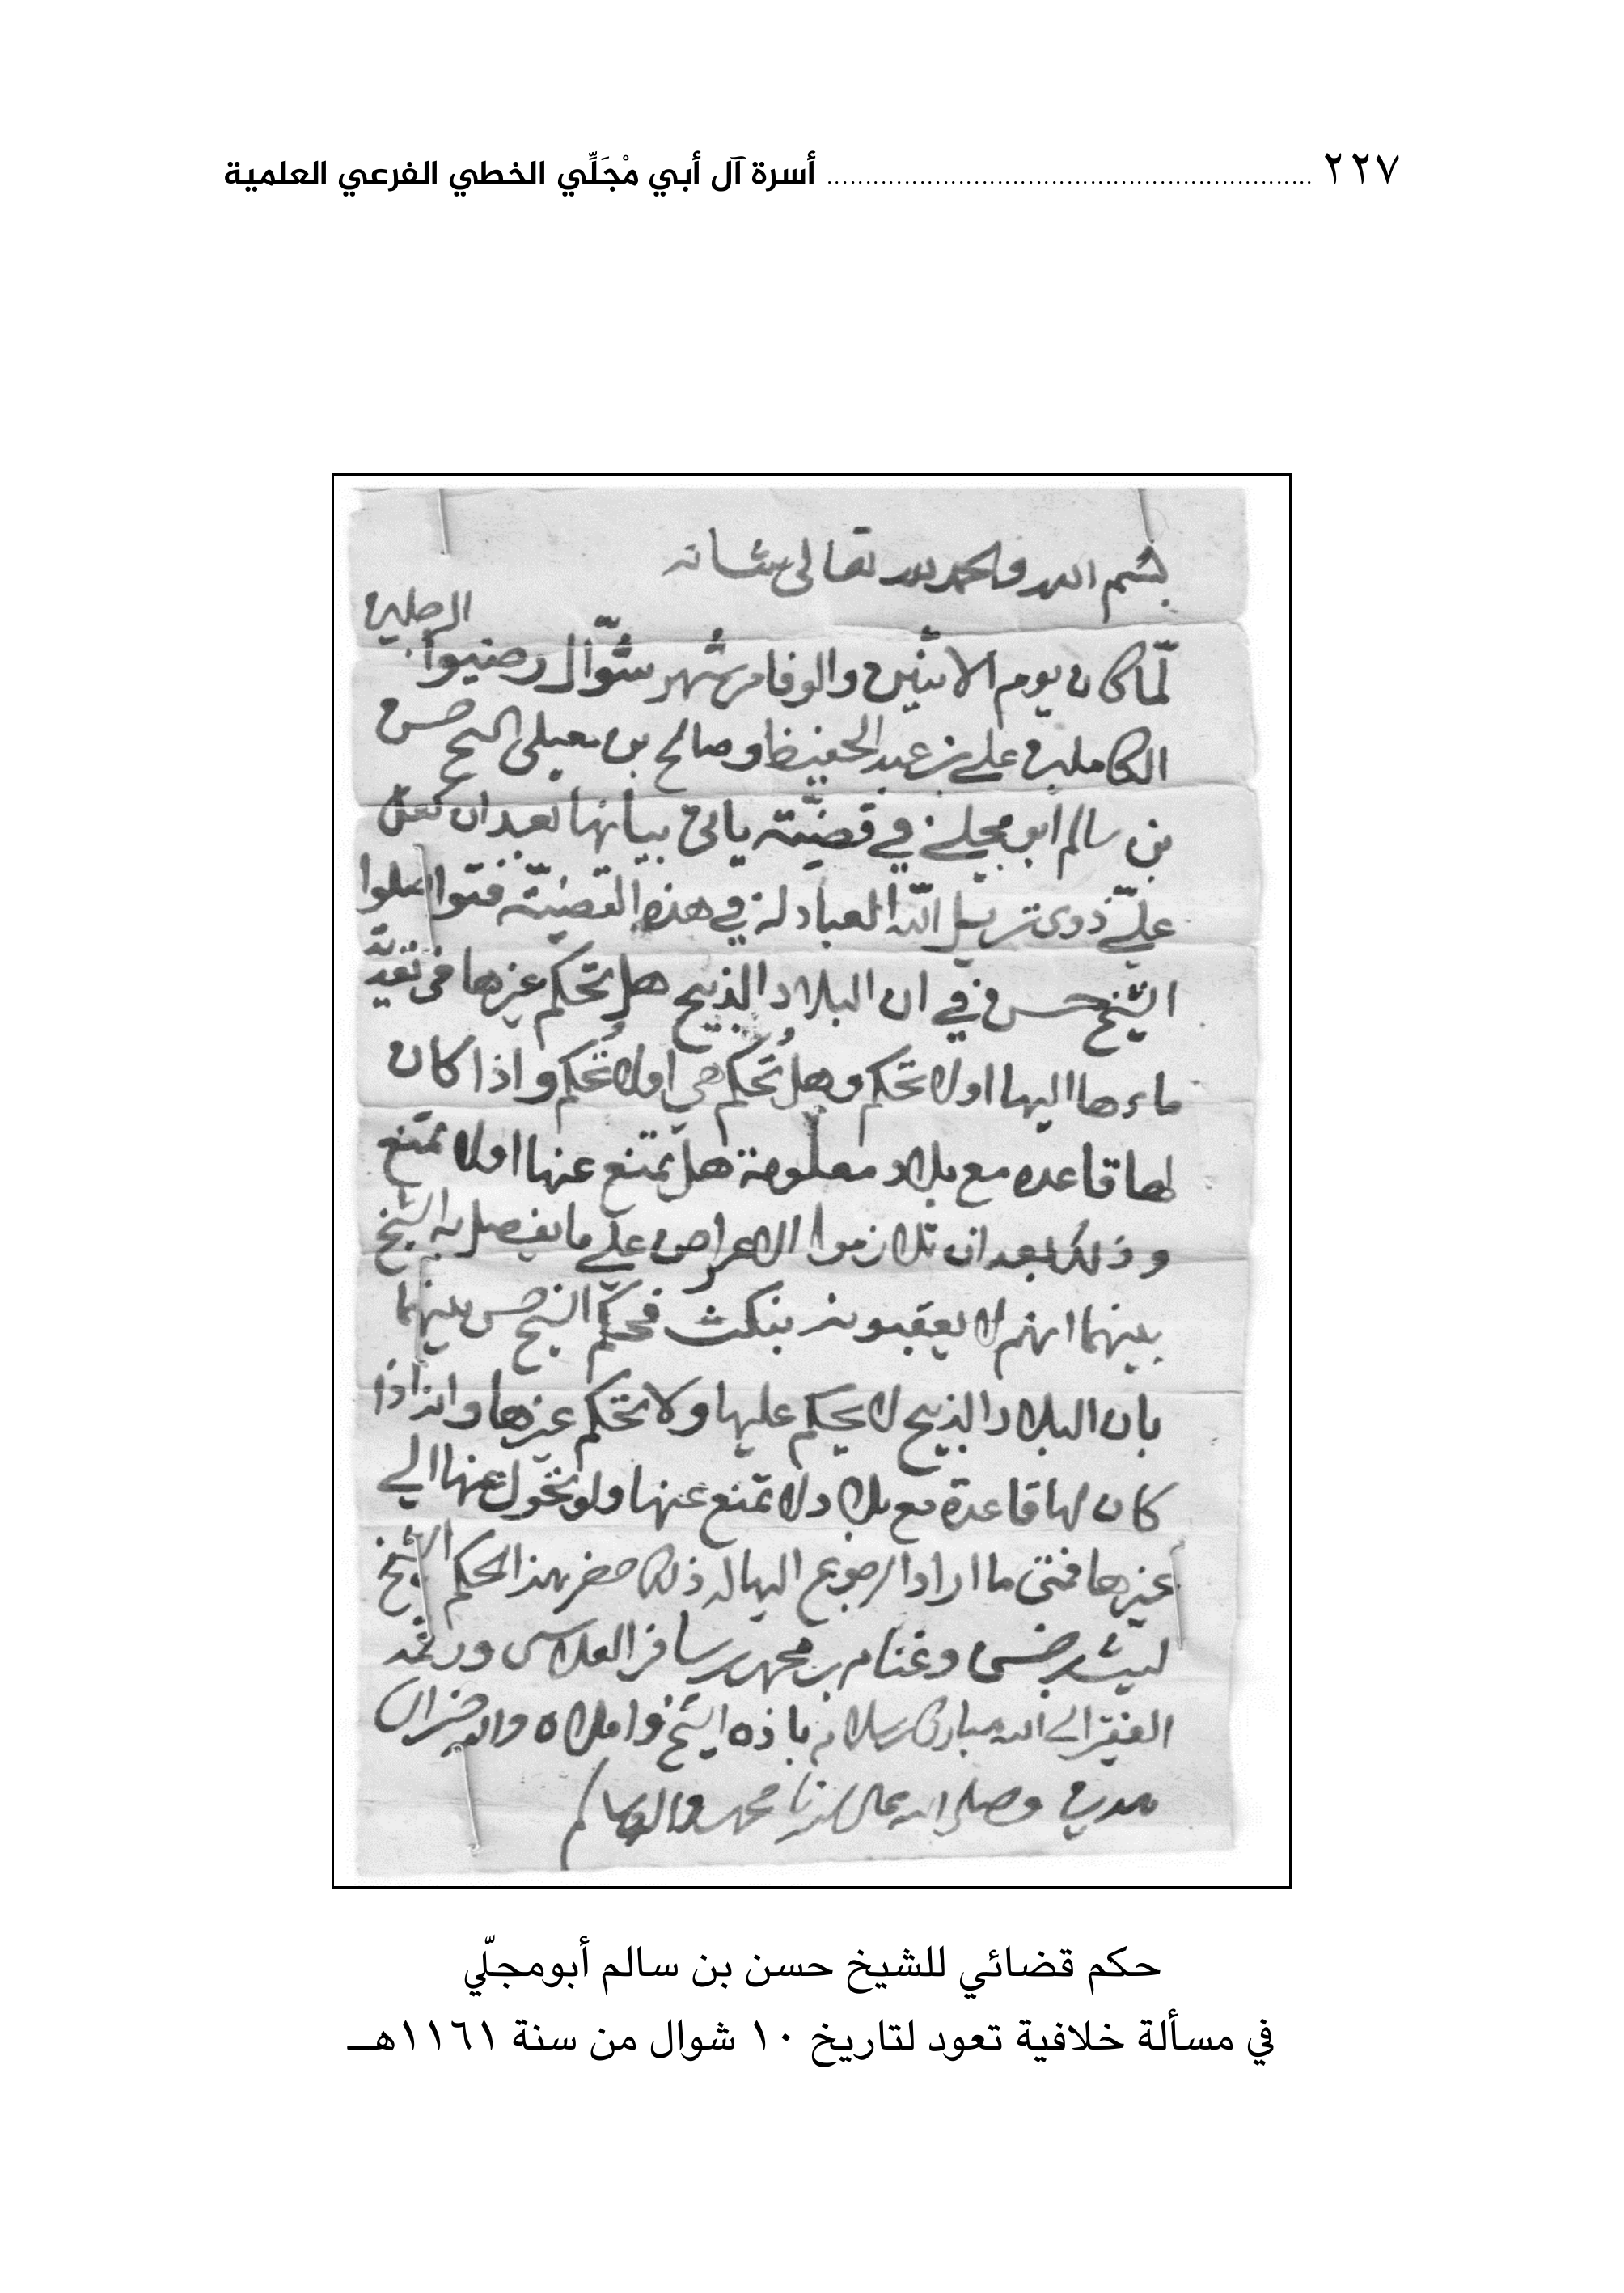 ٢٢٧ أسرة آل أبي مْجَلِّي الخطي الفرعي العلمية
بسم الله والحمد لله تعالى شانه
الرجلين
لمّا كان يوم الاثنين والوفا من شهر شوّال رضيوا
الكاملين علي بن عبد الحفيظ وصالح بن معيلي الشيخ حسن
بن سالم ابو مجلي في قضيّة ياتي بيانها بعد ان
عليّ ذوى العبادلة في هذه القضيّة
الشيخ حسن في ان البلاد الذبيح هل تحكم غيرها في
ماءها اليها اولا تحكم وهل تُحكم هي اولا تُحكم واذا كان
لها قاعده مع بلاد معلومة هل تمتنع عنها اولا تمتنع
وذلك بعد ان تلازموا الاعراض على ما يفصل به الشيخ
بينهما انهم لا يعقبونه بنكث فحكم الشيخ حسن بينهما
بان البلاد الذبيح لا يحكم عليها ولا تحكم غيرها وانه اذا
كان لها قاعدة مع بلاد لا تمتنع عنها ولو تحول عنها الي
غيرها فمتى ما اراد الرجوع اليها له ذلك حضر بهذا الحكم الشيخ
وغنام بن محمد
الفقير الى الله مبارك بن سلام باذن الشيخ واملاه والله خير
وصلى الله على سيدنا محمد واله وسلم
حكم قضائي للشيخ حسن بن سالم أبومجلّي
في مسألة خلافية تعود لتاريخ ١٠ شوال من سنة ١١٦١هـ